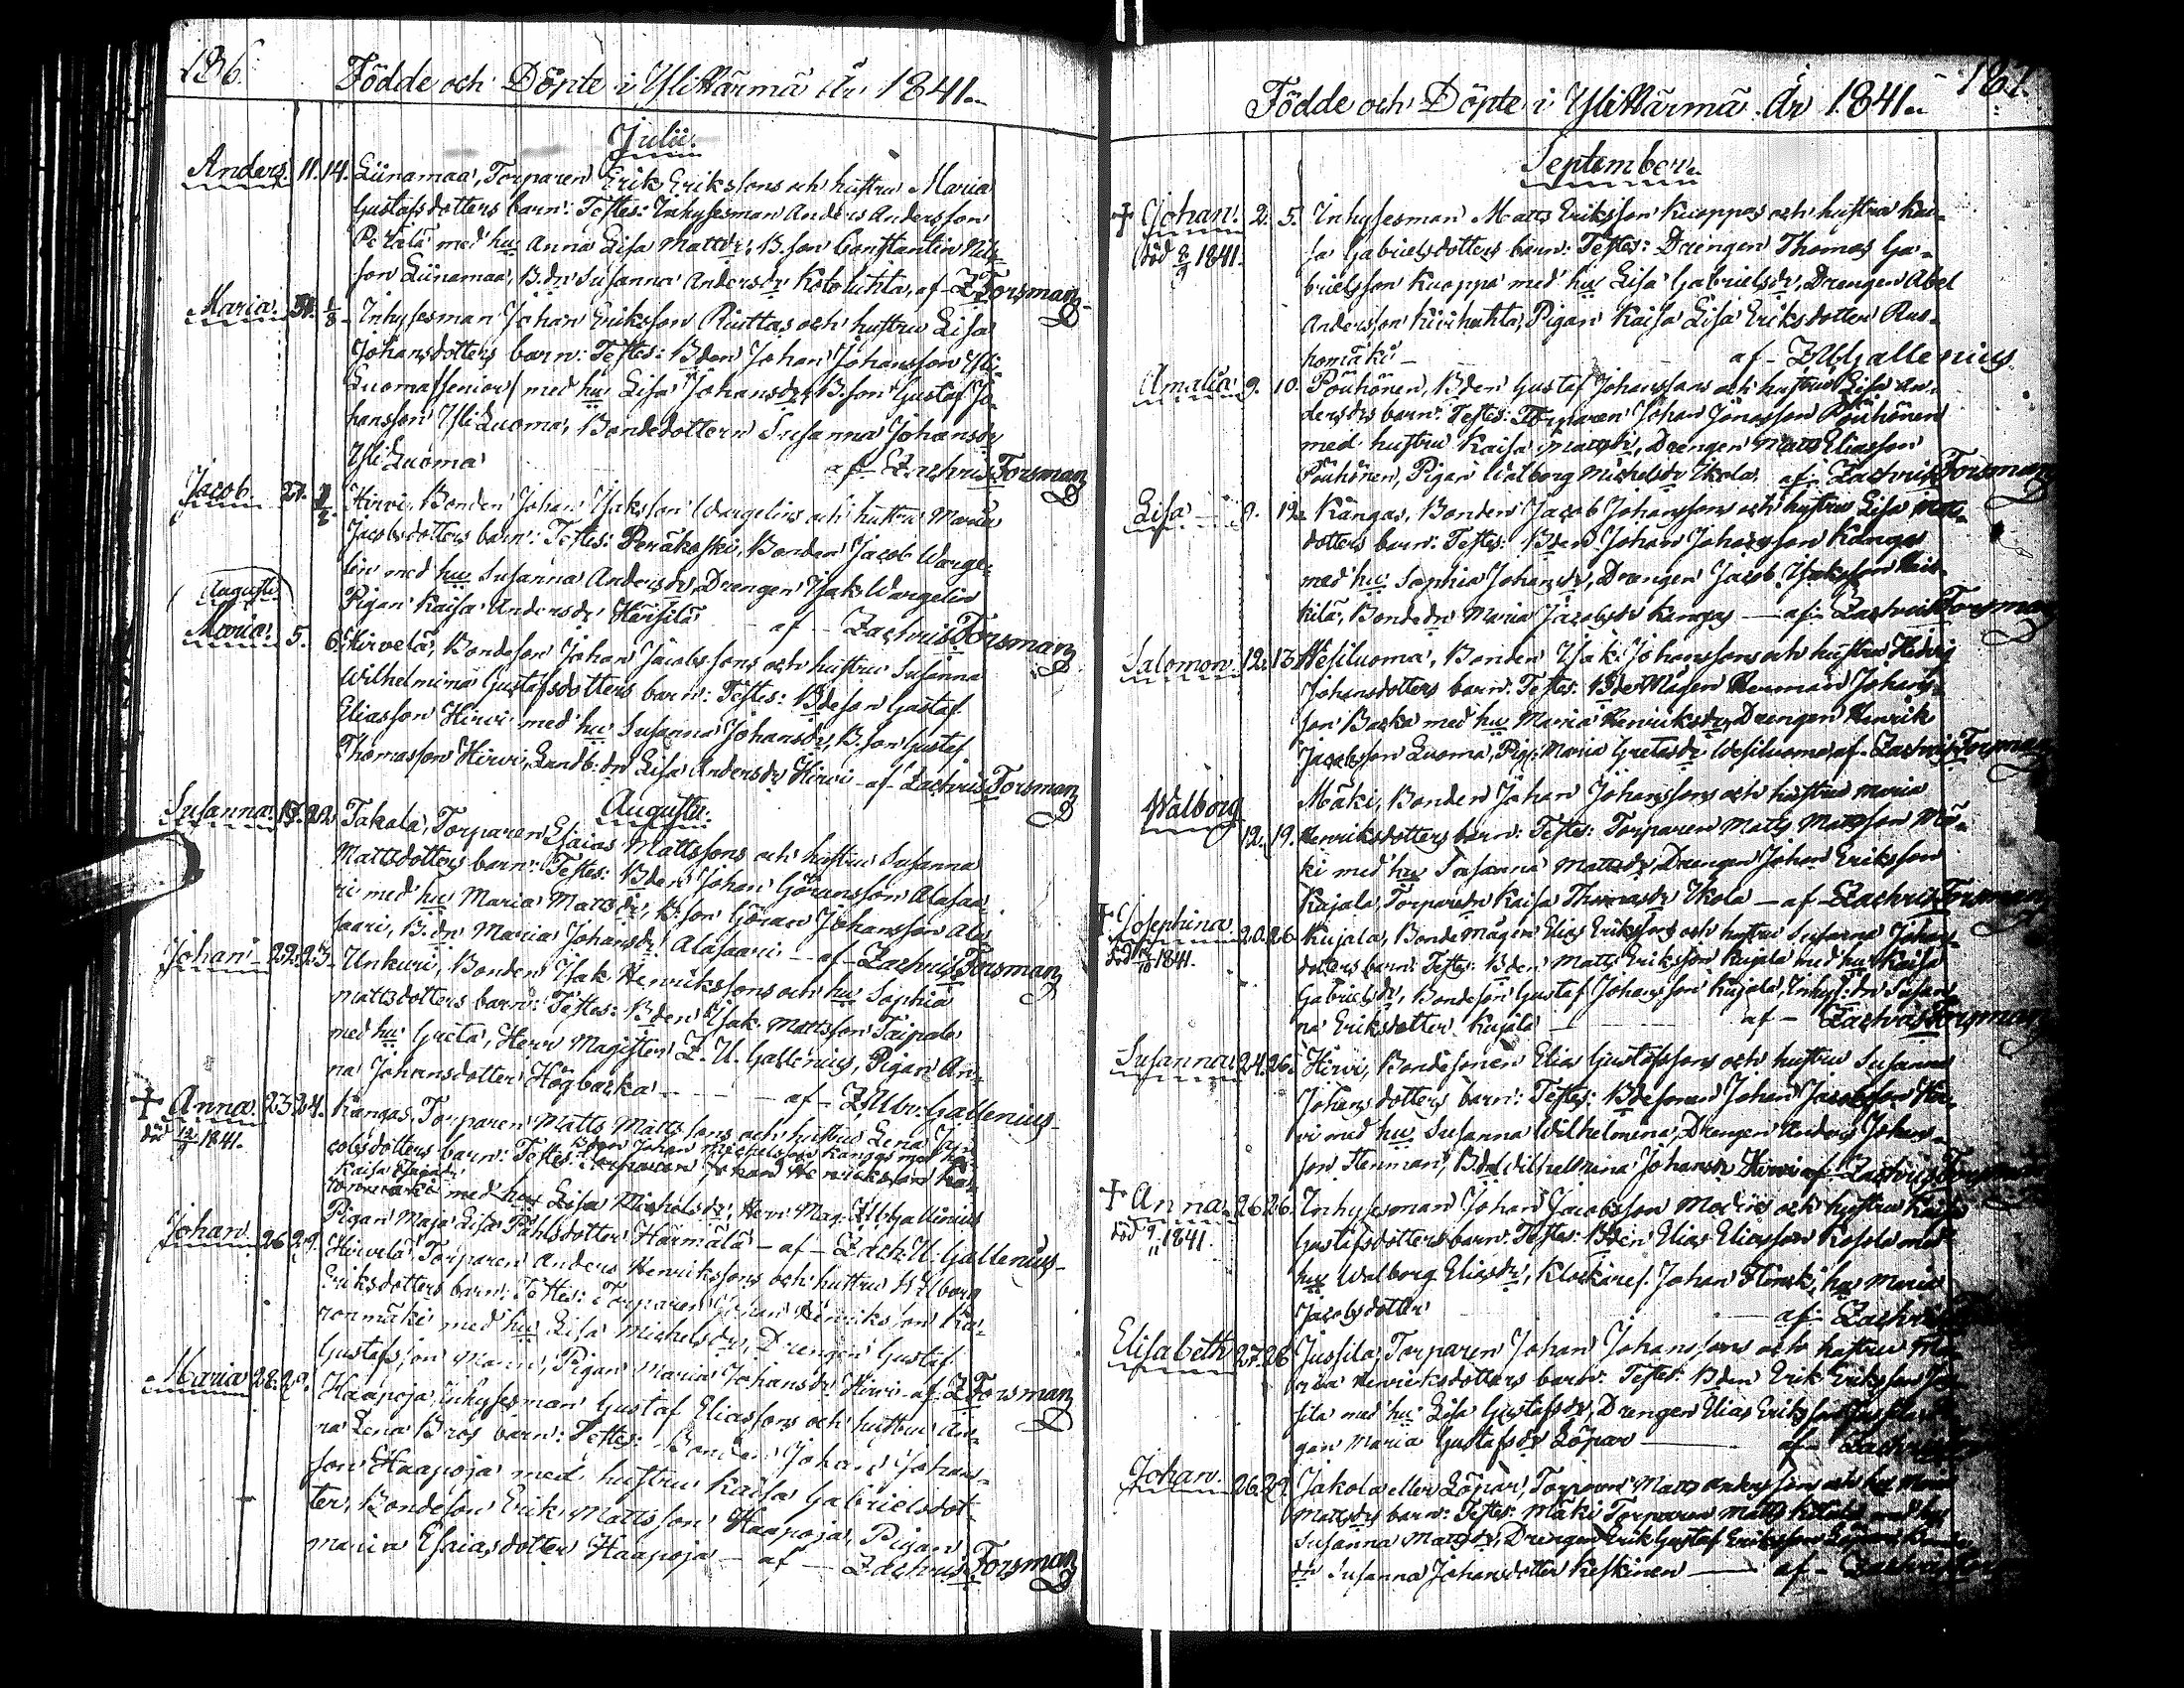 186.
Födde och Döpte i Ylihärmä År 1841.
Julii.
Anders. 11. 14. Liinamaa, Torparen Erik Erikssons och hustru Maria
Gustafsdotters barn: Testes: Inhysesman Anders Andersson
med hu Anna Lisa Mattsdr, B. son Constantin
son Liinamaa, B. dr Susanna Andersdr Kotoluhta, af Z Forsman
Maria. 31. 1/8 Inhysesman Johan Eriksson Riuttas och hustru Lisa
Johansdotters barn: Testes: Bden Johan Johansson Yli
Luoma /senior/ med hu Lisa Johansdr, B. son Gustaf Jo-
hansson YliLuoma, Bondedottern Susanna Johansdr
YliLuoma af Zachris Forsman
Jacob. Hirvi, Bonden Johan Isaksson Wargelins och hustru Maria
Jacobsdotters barn: Testes: Peräkoski, Bonden Jacob Warge-
lin med hu Susanna Andersdr, Drengen Isak Wargelin
Pigan Kaisa Andersdr Härsilä af Zachris Forsman
Augusti
Maria. 5. 6. Hirvelä, Bondeson Johan Jacobssons och hustru Susanna
Wilhelmina Gustafsdotters barn: Testes: Bdeson Gustaf
Eliasson Hirvi med hu Susanna Johansdr, B. son Gustaf
Thomasson Hirvi, Landb: dr Lisa Andersdr Hirvi af Zachris Forsman
Augusti.
Susanna. 22. Takala, Torparen Esaias Mattssons och hustru Susanna
Mattsdotters barn: Testes: Bden Johan Göransson Alasaa-
ri med hu Maria Mattsdr, B. son Göran Johansson Ala-
saari, B. dr Maria Johansdr Alasaari af Zachris Forsman
Johan 22. 23. Unkuri, Bonden Isak Henrikssons och hu Sophia
Mattsdotters barn: Testes: Bden Isak Mattsson Taipale
med hu Greta, Herr Magister Z. U. Gallenius, Pigan An-
na Johansdotter Högbacka af Z Gallenius
+ Anna. 23 24. Kangas. Torparen Matts Mattssons och hustru Lena Ja-
död 1841. cobsdotters barn: Testes: Bden Johan Michelsson Kangas med hu
Kaisa
med hu Lisa Michelsdr, Herr Mag: Z U Gallenius
Pigan Maja Lisa Påhlsdotter Härmälä af Zach: U. Gallenius
Johan. 26 29. Hirvelä Torparen Anders Henrikssons och hustru Walborg
Eriksdotters barn: Testes: Torparen Johan Henriksson Ko-
ronmäki med hu Lisa Michelsdr, Drengen Gustaf
Gustafsson Mann, Pigan Maria Johansdr Hirvi af Z Forsman
Maria 28. 29. Haapoja, Inhysesman Gustaf Eliassons och hustru An-
na Lena Bros barn: Testes: Bonden Johan Johans-
son Haapoja med hustru Kaisa Gabrielsdot-
ter, Bondeson Erik Mattsson Haapoja, Pigan
Maria Esaiasdotter Haapoja af Zachris Forsman
187.
Födde och Döpte i Ylihärmä År 1841.
September.
+ Johan. 2. 5. Inhysesman Matts Eriksson Kuoppas och hustru Kai-
död 8/9 1841. sa Gabrielsdotters barn: Testes: Drengen Thomas Ga-
brielsson Kuoppa med hu Lisa Gabrielsdr, Drengen Abel
Andersson Kivihuhta, Pigan Kaisa Lisa Eriksdotter
af Z U Gallenius.
Amalia. 9. 10. Pöuhönen, Bden Gustaf Johanssons och hustru Lisa An-
dersdrs barn: Testes: Torparen Johan Jonasson Pöuhönen
med hustru Kaisa Mattsdr, Drengen Matts Eliasson
Pöuhönen, Pigan Walborg Michelsdr Ikola, af Zachris Forsman
Lisa 9. 12. Kangas, Bonden Jacob Johanssons och hustru Lisa Matts-
dotters barn: Testes: Bden Johan Johansson Kangas
med hu Sophia Johansdr, Drengen Jacob Isaksson
Bondedr Maria Jacobsdr Kangas af Zachris Forsman
Salomon. 12. 13. Wesiluoma, Bonden Isak Johanssons och hustru Hedvig
Johansdotters barn: Testes: Bdemågen Herman Johans-
son Backa med hu Maria Henriksdr, Drengen Henrik
Jacobsson Luoma, Pig: Maria Gretasdr Wesiluoma af Zachris Forsman
Walborg 12. 19. Mäki, Bonden Johan Johanssons och hustru Maria
Henriksdotters barn: Testes: Torparen Matts Mattsson Mä-
ki med hu Susanna Mattsdr, Drengen Johan Eriksson
Kujala, Torparedr Kaisa Thomasdr Ikola af Zachris Forsman
+ Josephina 20. 26. Kujala, Bondemågen Elias Erikssons och hustru Susanna Johans-
död 1841. dotters barn: Testes: Bden Matts Eriksson Kujala med hu Kaisa
Gabrielsdr, Bondeson Gustaf Johansson Kujala, Inhys: dr Susan-
na Eriksdotter Kujala af Zachris Forsman
Susanna 24. 26. Hirvi, Bondesonen Elias Gustafssons och hustru Susanna
Johansdotters barn: Testes: Bdesonen Johan Jacobsson Hir-
vi med hu Susanna Wilhelmina, Drengen Johans-
son Stenman, Bdr Wilhelmina Johansdr Hirvi af Zachris Forsman
+ Anna 26 26. Inhysesman Johan Jacobsson och hustru Kaisa
död 1841. Gustafsdotters barn: Testes: Bden Elias Eliasson med
hu Walborg Eliasdr, Johan hu Maria
Jacobsdotter af Zachris
Elisabeth 27. 28 Jussila, Torparen Johan Johanssons och hustru Ma-
ria Henriksdotters barn: Testes: Bden Erik Eriksson Jus-
sila med hu Lisa Gustafsdr, Drengen Elias Eriksson Jussila Pi-
gan Maria Gustafsdr Löpar af Zachris
Johan. 26. 29. Jakola eller Löpar, Torparen Matts Anderssons och hu Maria
Mattsdrs barn: Testes: Mäki Torparen Matts med hu
Susanna Mattsdr, Drengen Erik Gustaf Eriksson
dr Susanna Johansdotter Keskinen af Zachris